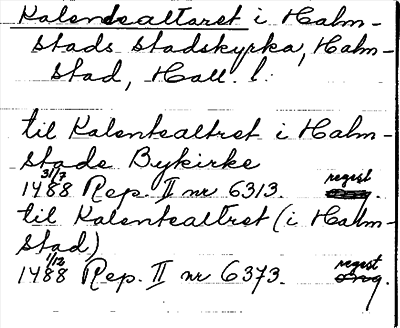 Kalendsaltaret i Halm-
stads stadskyrka, Halm-
stad, Hall. l.
til Kalentealtret i Halm-
stade Bykirke
31/7
1488 Rep. II nr 6313. regest
til Kalentealtret (i Halm-
stad)
1/12
1488 Rep. II nr 6373. regest